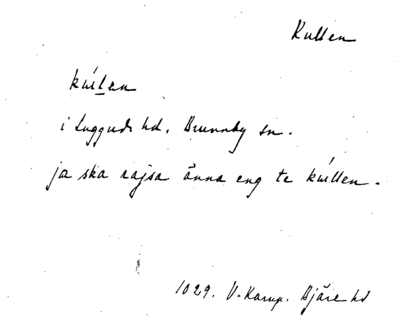 Kullen
kúllen
i Luggude hd. Brunnby sn.
ja ska rajsa änna eng te kúllen.
1029. V. Karup. Bjäre hd